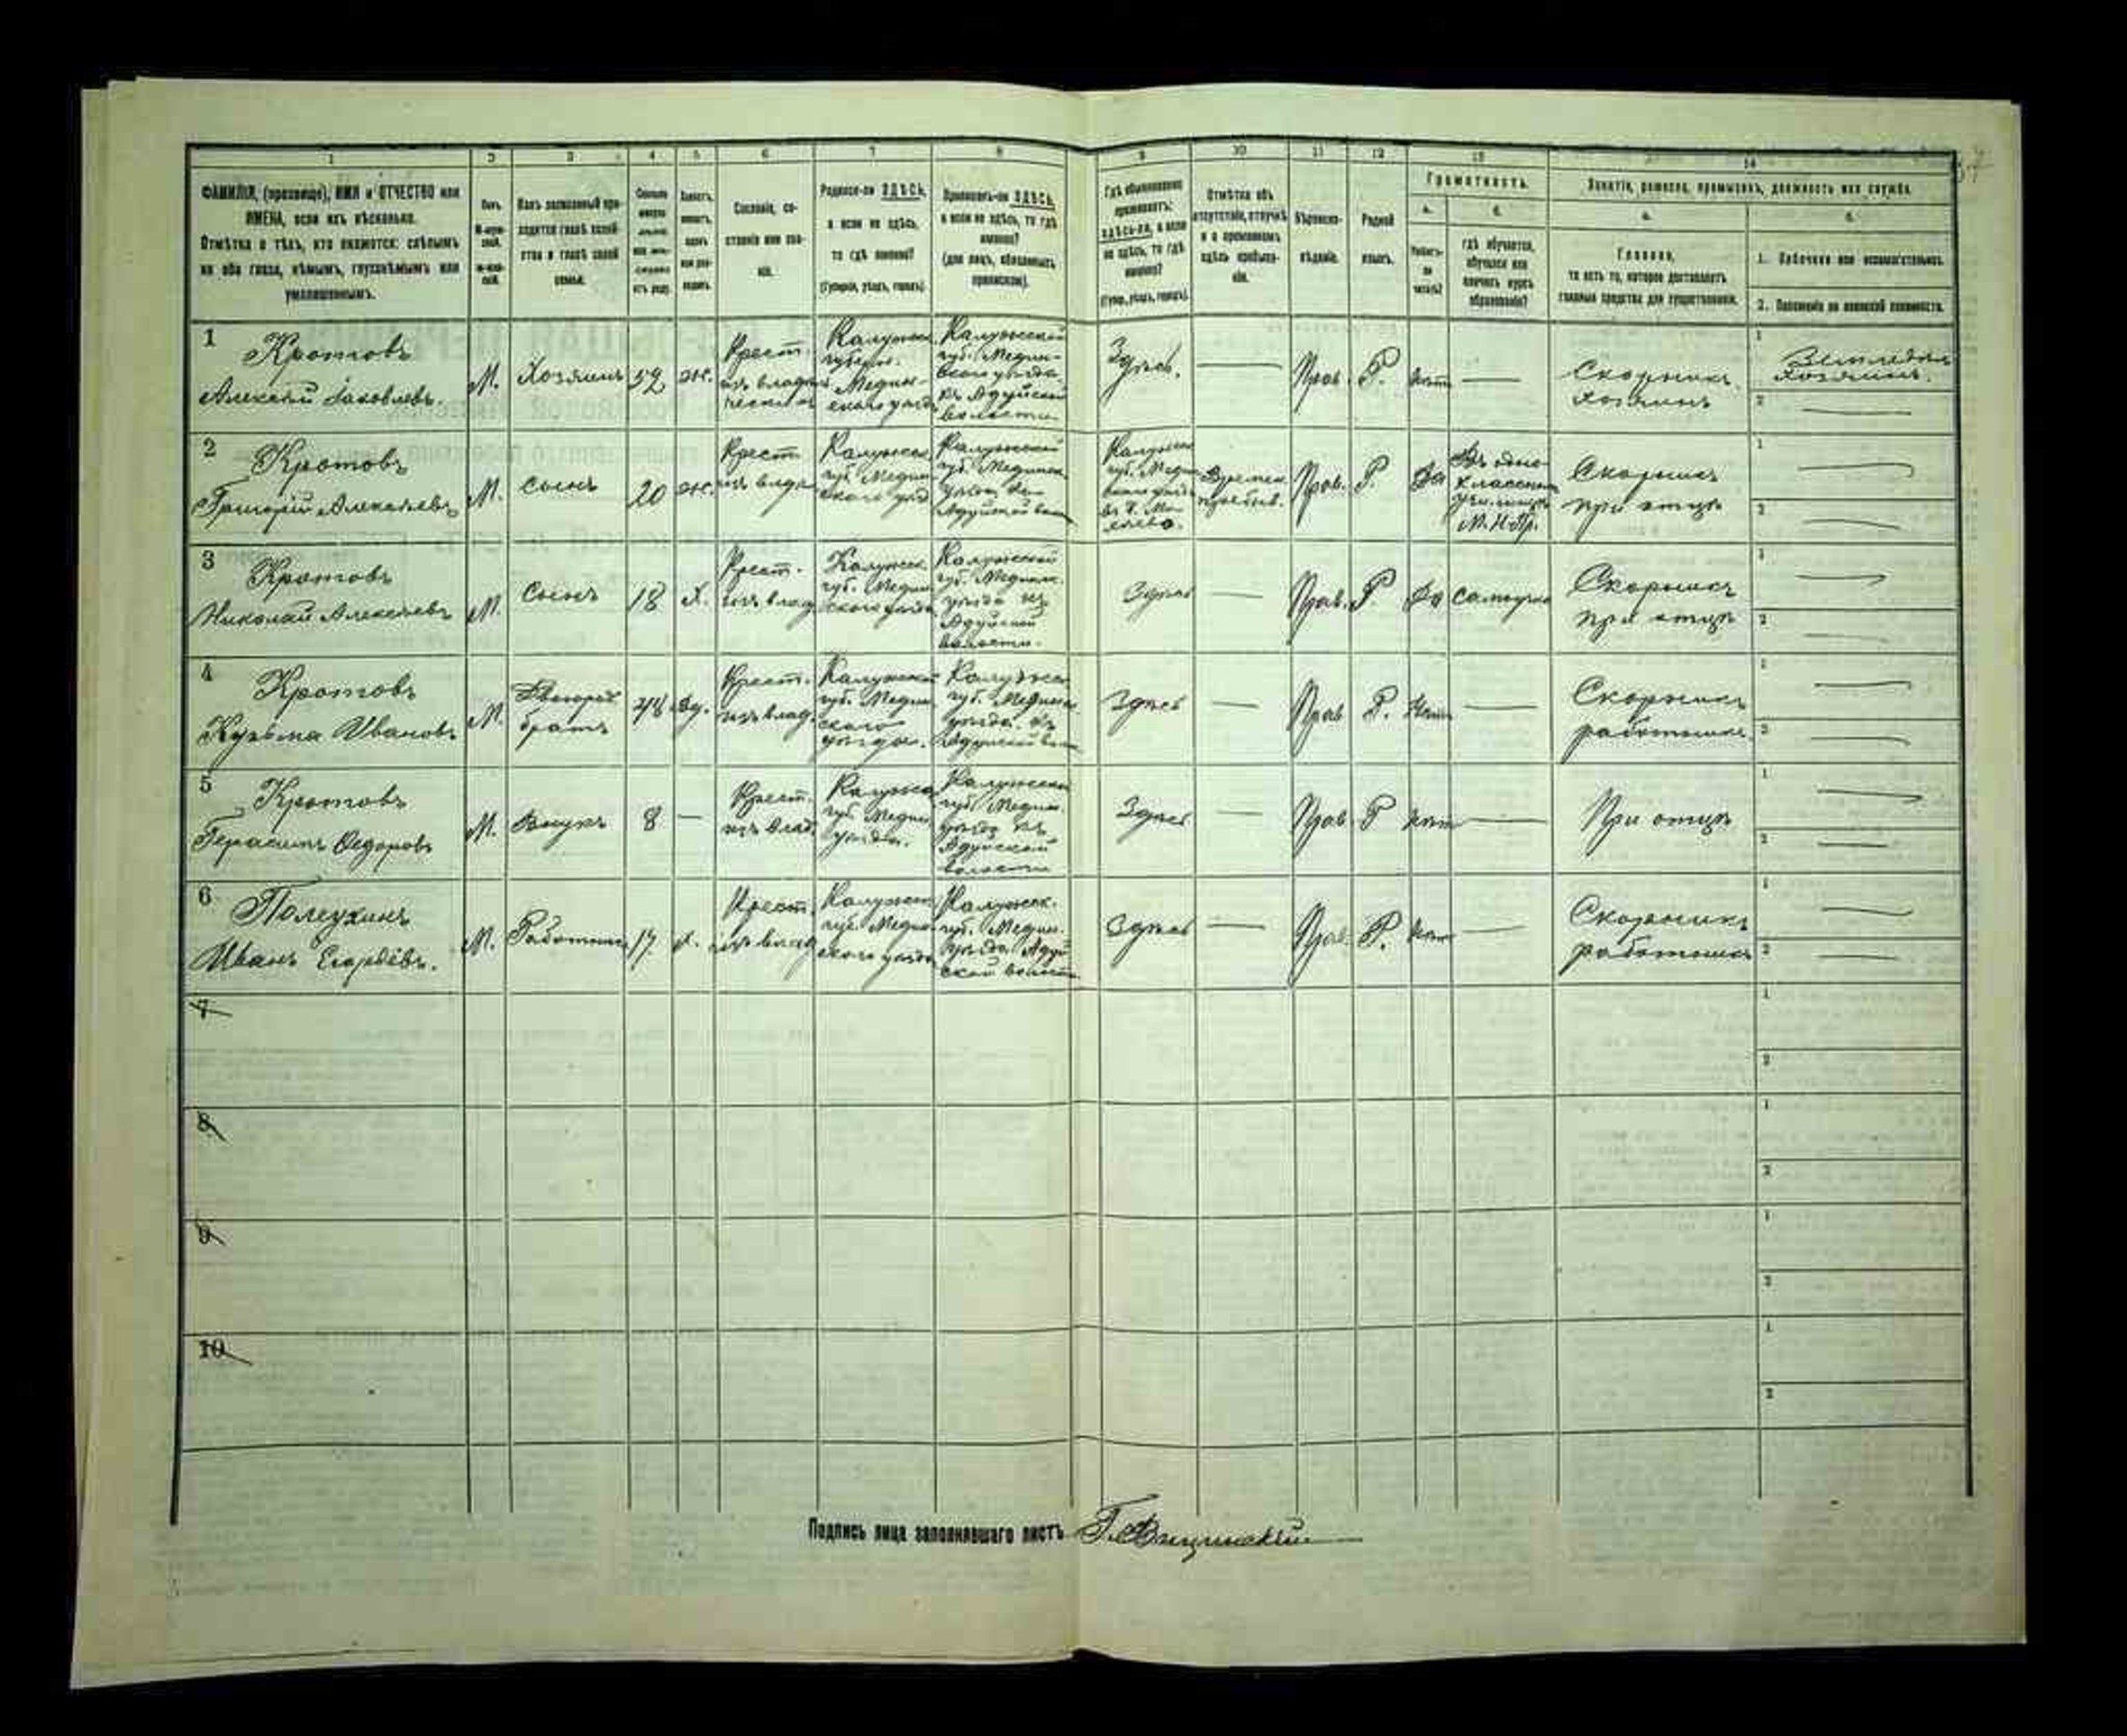 1 2 3 4 5 6 7 8 9 10 11 12 13 14
ФАМИЛІЯ, (прозвище), ИМЯ и ОТЧЕСТВО или
ИМЕНА, если ихъ нѣсколько.
Отмѣтка о тѣхъ, кто окажется: слѣпымъ
на оба глаза, нѣмымъ, глухонѣмымъ или
умалишеннымъ.
Полъ.
Какъ записанный при-
ходится главѣ хозяй-
ства и главѣ своей
семьи.
Сословіе, со-
стояніе или зва-
ніе.
Родился-ли ЗДѢСЬ,
а если не здѣсь,
то гдѣ именно?
(Губернія, уѣздъ, городъ)
Приписанъ-ли ЗДѢСЬ,
а если не здѣсь, то гдѣ
именно?
(для лицъ, обязанныхъ
припиской).
Гдѣ обыкновенно
проживаетъ:
здѣсь-ли, а если
не здѣсь, то гдѣ
именно?
(Губер., уѣздъ, городъ).
Отмѣтка объ
отсутствіи, отлучкѣ
и о временномъ
здѣсь пребыва-
ніи.
Вѣроиспо-
вѣданіе.
Родной
языкъ.
Грамотность.
а.
Умѣетъ-
ли
читать?
б.
гдѣ обучается,
обучался или
кончилъ курсъ
образованія?
Занятіе, ремесло, промыселъ, должность или служба.
а.
Главное,
то есть то, которое доставляетъ
главныя средства для существованія.
б.
1. Побочное или вспомогательное.
2. Положеніе по воинской повинности.
1
Кротовъ
Алексѣй Яковлевъ.
М.
Хозяинъ
52
ж.
Крест.
изъ владѣль-
ческихъ
Калужск.
губерн.
Медын-
скаго уѣзд
Калужской
губ. Медын-
скаго уѣзда.
Адуйской
волости
Здѣсь.
Прав.
Р.
нѣтъ
Скорнякъ.
хозяинъ
1
Земледѣл.
хозяинъ.
2
2
Кротовъ
Григорій Алексѣевъ
М.
сынъ
20
ж.
Крест
изъ влад
Калужск.
губ. Медын
скаго уѣзд
Калужской
губ. Медынск.
уѣзда
Адуйской вол
Калужск
губ. Медын
скаго уѣзд
Времен.
пребыв.
Прав.
Р.
Да
Въ одно-
классном
училищѣ
М. Н. Пр.
Скорнякъ
при отцѣ
1
2
3
Кротовъ
Николай Алексѣевъ
М.
Сынъ
18
Х.
Крест.
изъ влад
Калужск.
губ. Медын
скаго уѣзда
Калужской
губ. Медынск.
уѣзда
Адуйской
волости.
Здѣсь
Прав.
Р.
Да
самоучка
Скорнякъ
при отцѣ
1
2
4
Кротовъ
Кузьма Ивановъ
М.
Двоюрод
братъ
48
Вд.
Крест.
изъ влад.
Калужской
губ. Медын
скаго
уѣзда.
Калужск
губ. Медынск.
уѣзда.
Адуйской вол
Здѣсь
Прав
Р.
Нѣтъ
Скорнякъ
работникъ.
1
2
5
Кротовъ
Герасимъ Ѳедоровъ
М.
Внукъ
8
Крест.
изъ влад.
Калужск
губ. Медын.
уѣзда.
Калужской
губ. Медын.
уѣзда
Адуйской
волости
Здѣсь
Прав
Р
нѣтъ
При отцѣ
1
2
6
Полеухинъ
Иванъ Егоровъ.
М.
Работник
17
х.
Крест.
изъ влад
Калужск
губ. Медын
скаго уѣзда
Калужск.
губ. Медын.
уѣзда Адуй
ской волости
Здѣсь
Прав.
Р.
нѣтъ
Скорнякъ
работникъ
1
2
7
1
2
8
1
2
9
1
2
10
1
2
Подпись лица заполнявшаго листъ